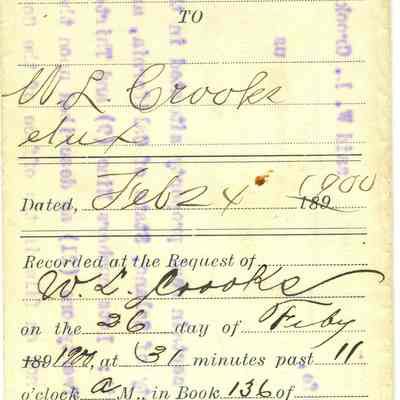 TO
W. L. Crooks
et ux
Dated, Feb 24 1900 189
Recorded at the Request of
W. L. Crooks
on the 26 day of Feby
189 1900, at 31 minutes past 11
o'clock A M., in Book 136 of